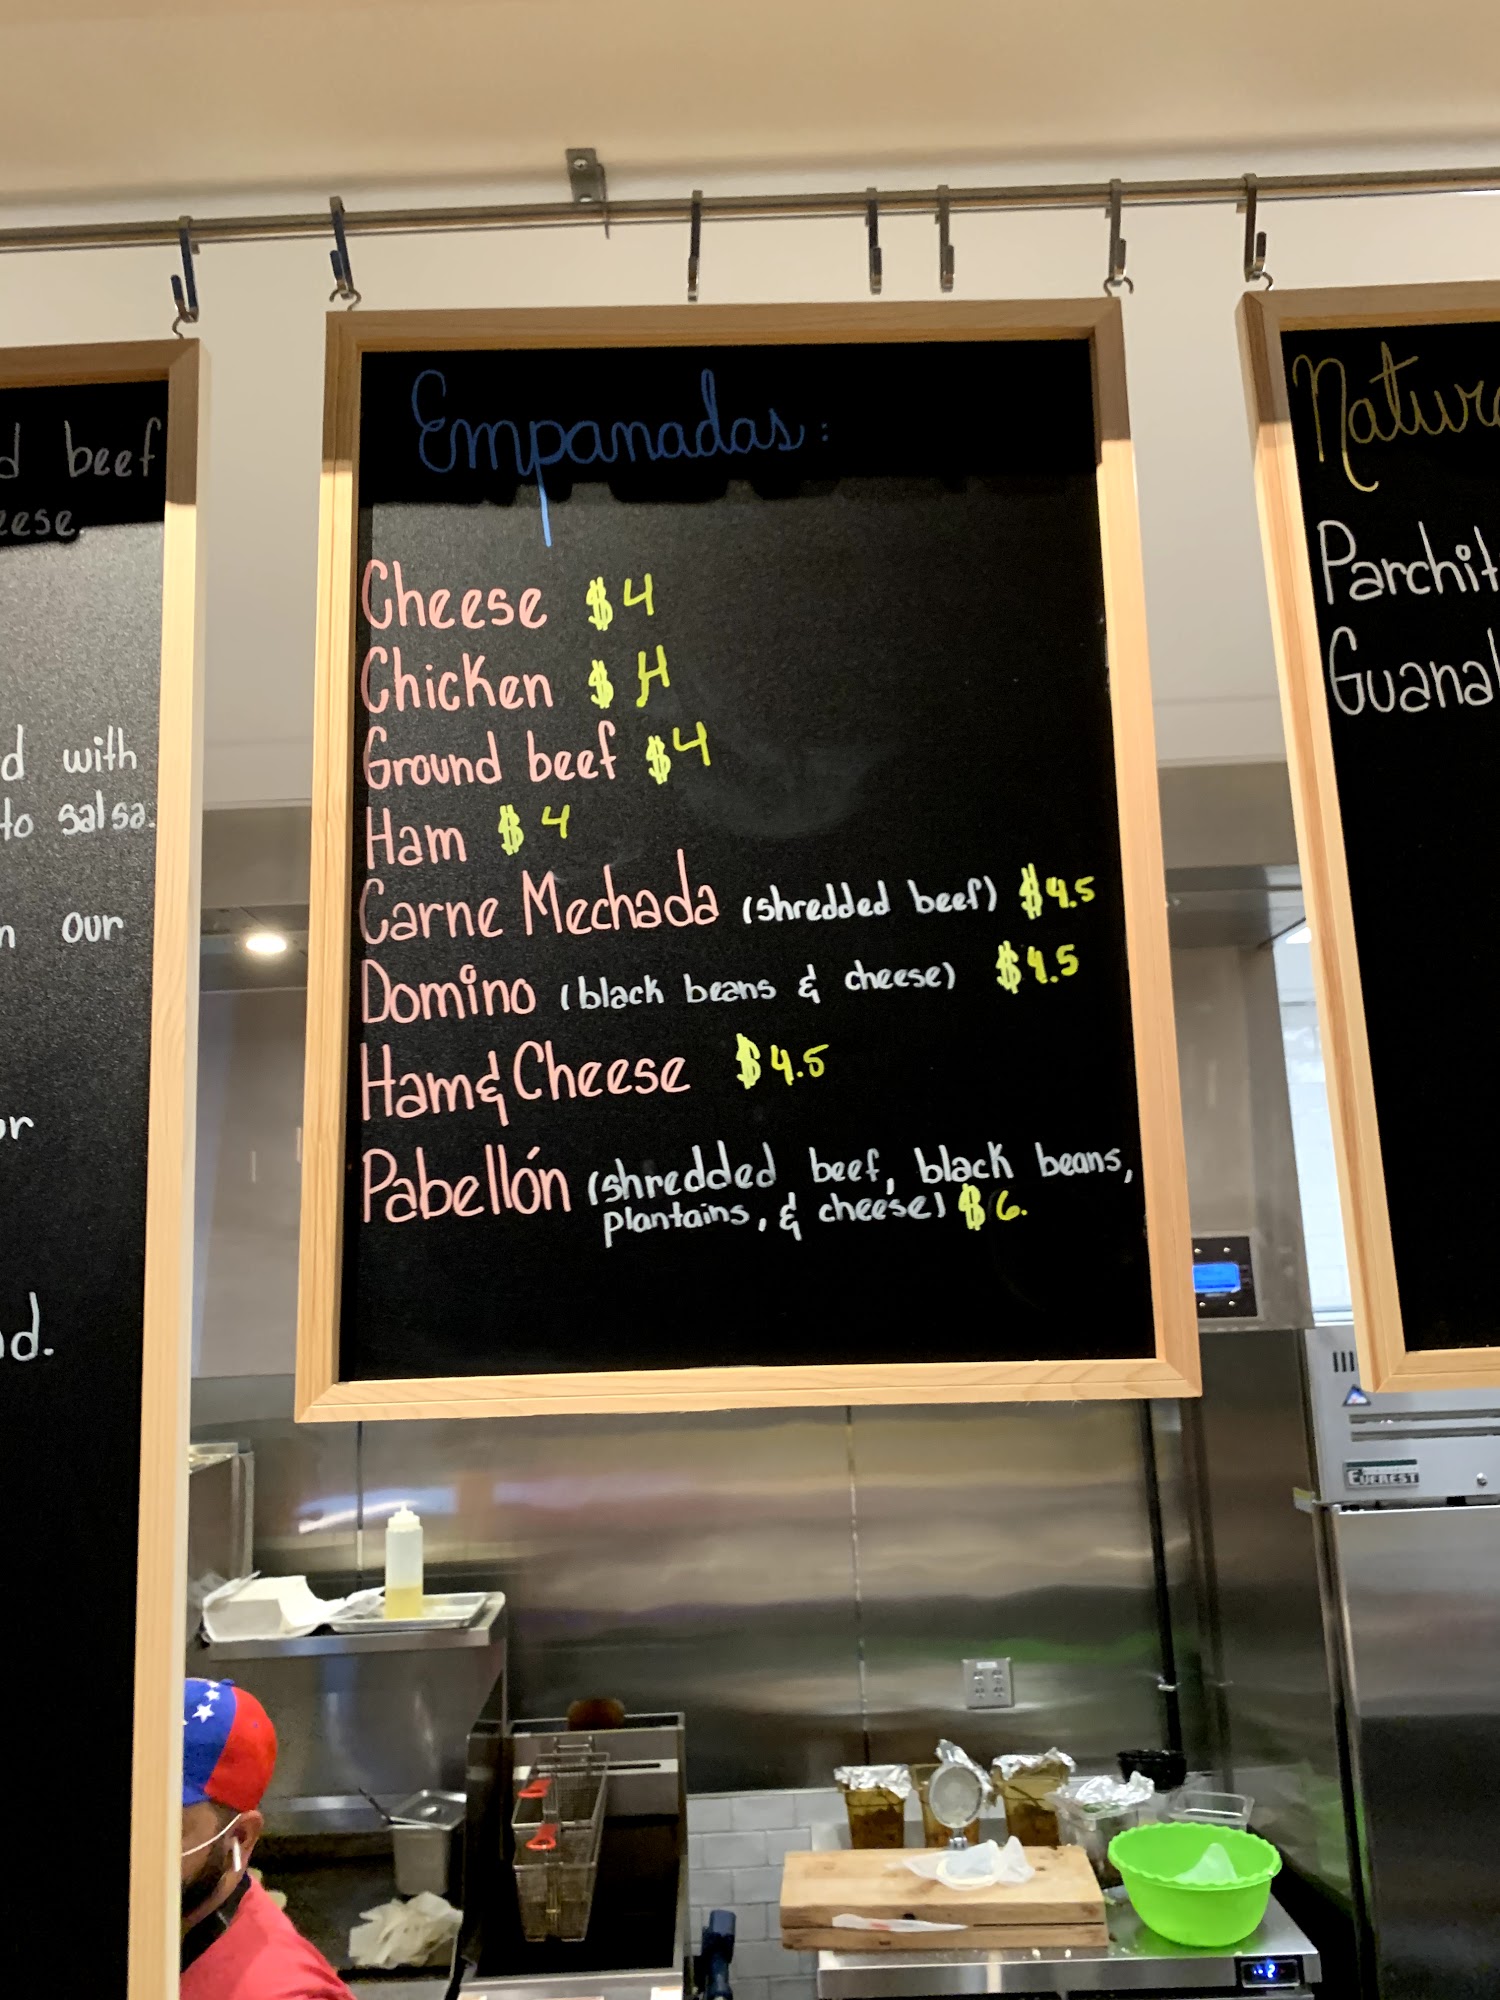 beef
with
salsa.
our
Empanadas:
Cheese $4
Chicken $4
Ground beef $4
Ham $4
Carne Mechada (shredded beef) $4.5
Domino (black beans & cheese) $4.5
Ham & Cheese $4.5
Pabellón (shredded beef, black beans,
plantains, & cheese) $6.
EVEREST